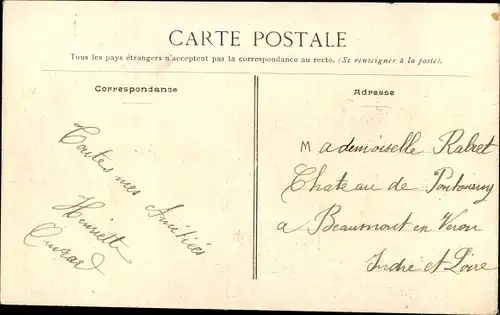 CARTE POSTALE
Tous les pays étrangers n'acceptent pas la correspondance au recto. (Se renseigner à la poste).
Correspondance
Toutes mes Amitiés
Henriette
Adresse
Mademoiselle Rabret
Chateau de
a Beaumont en Veron
Indre et Loire